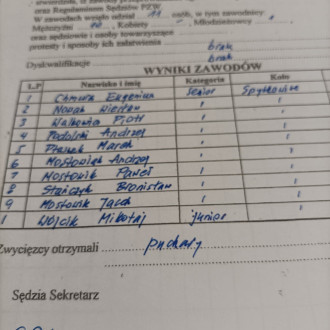 oraz Regulaminem Sędziów PZW
W zawodach wzięło udział 11 osób, w tym zawodnicy:
Mężczyźni 10, Kobiety -, Młodzieżowcy 1
oraz sędziowie i osoby towarzyszące
protesty i sposób ich załatwienia brak
Dyskwalifikacje brak
WYNIKI ZAWODÓW
L.P Nazwisko i Imię Kategoria Koło
1 Chmura Eugeniusz Senior
2 Nowak Wiesław
3 Piotr
4 Podolski Andrzej
5 Marek
6 Mostowiak Andrzej
7 Mostowik Paweł
8 Stańczyk Bronisław
9 Mostowik Jacek
1 Wójcik Mikołaj junior
Zwycięzcy otrzymali puchary
Sędzia Sekretarz